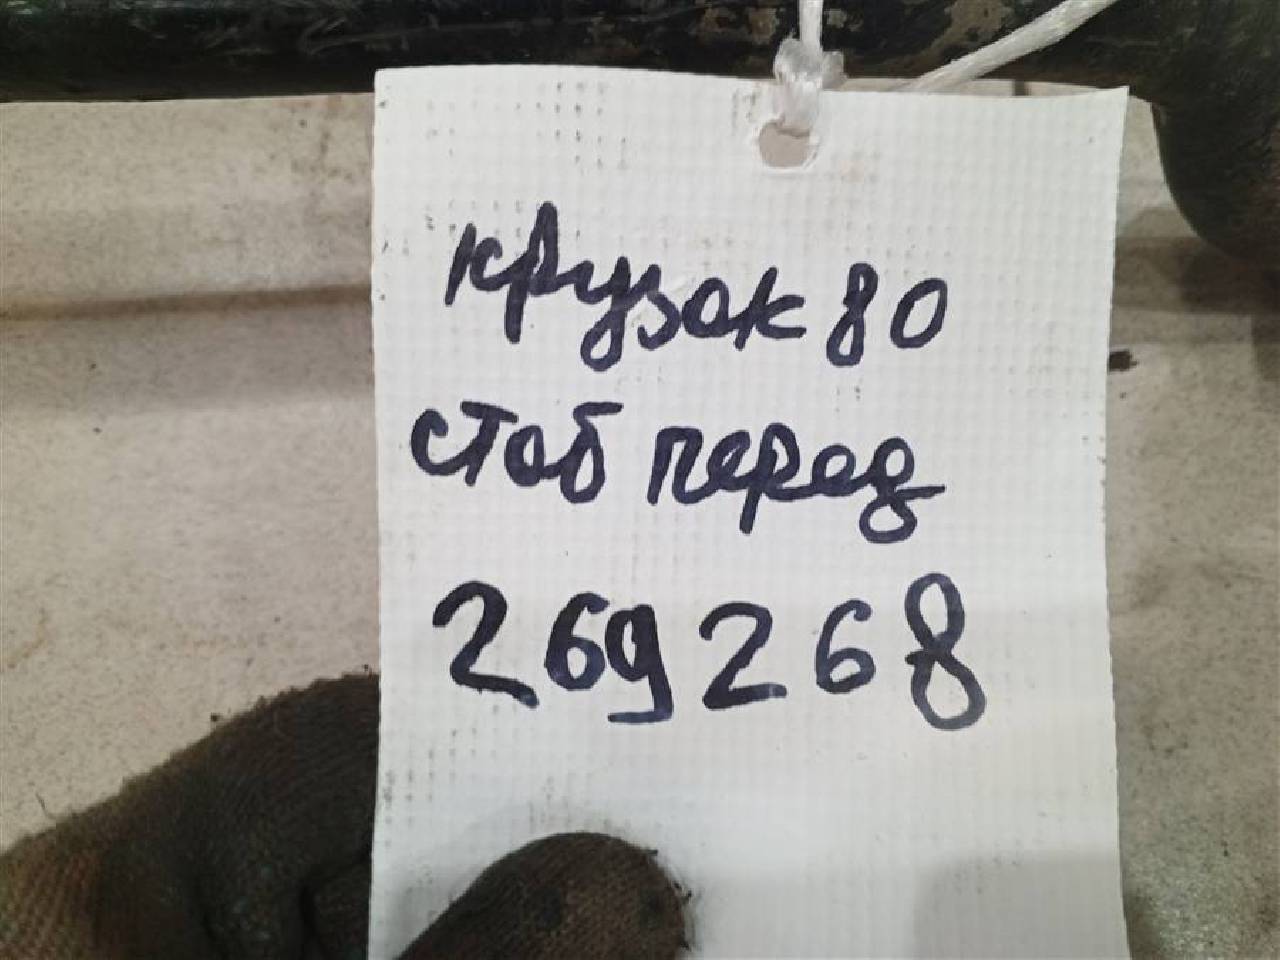 крузак 80
стаб перед
269268